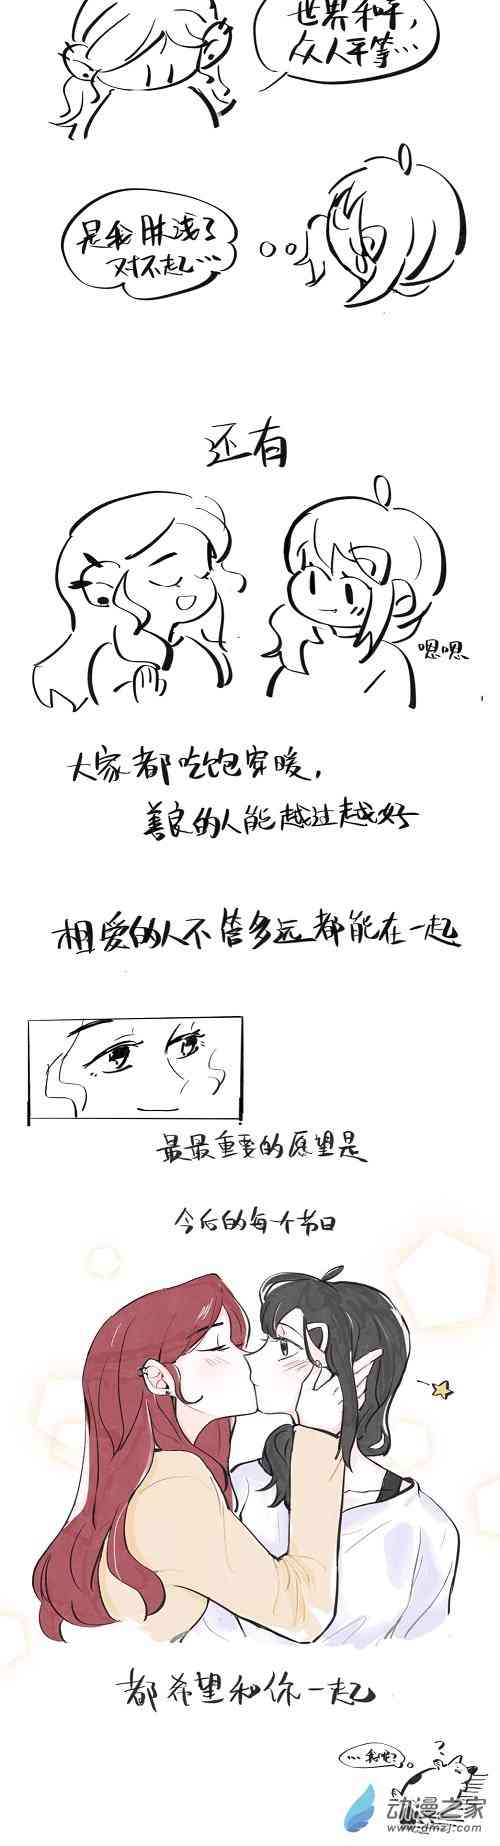 世界和平，
众人平等…
是我肤浅了
对不起…
还有
嗯嗯
大家都吃饱穿暖，
善良的人能越过越好
相爱的人不管多远都能在一起
最最重要的愿望是
今后的每个节日
都希望和你一起
…我呢？
动漫之家
www.dmzj.com